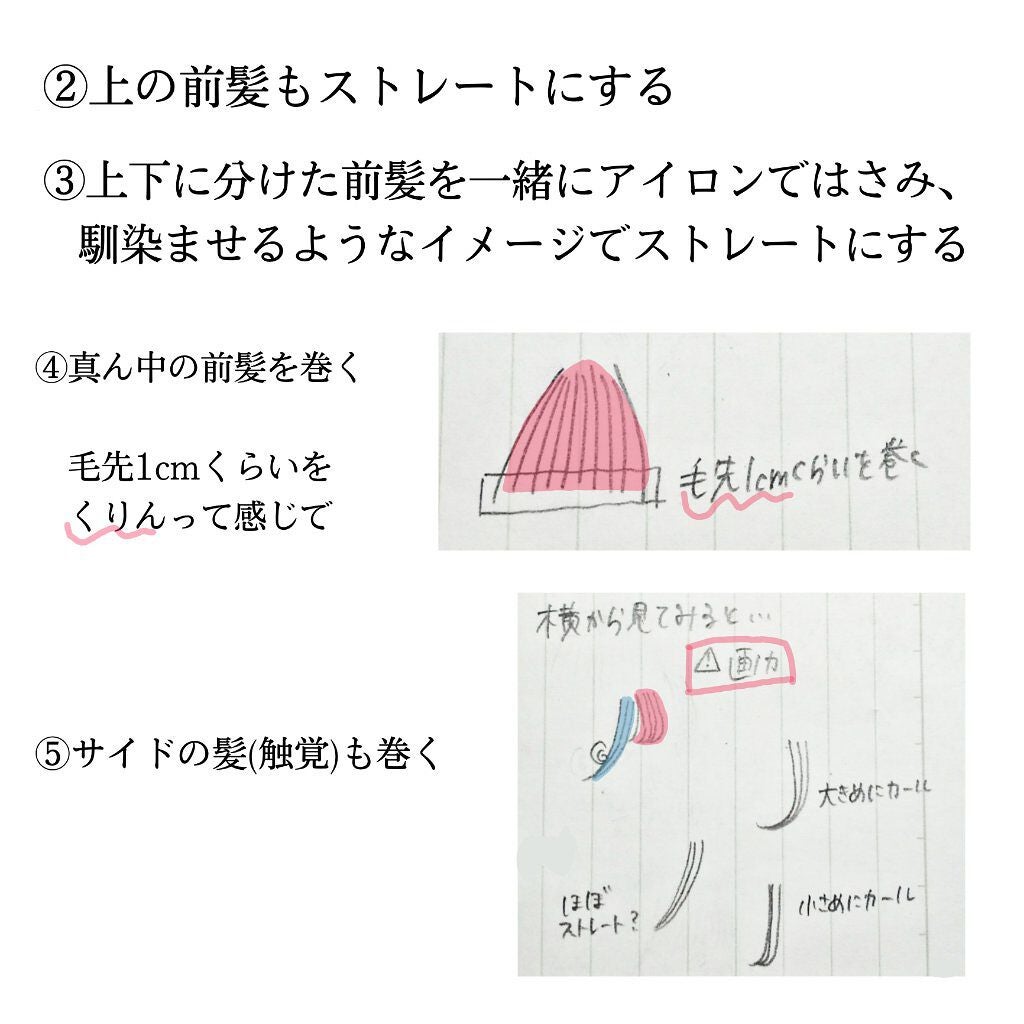 ②上の前髪もストレートにする
③上下に分けた前髪を一緒にアイロンではさみ、
馴染ませるようなイメージでストレートにする
④真ん中の前髪を巻く
毛先1cmくらいを
くりんって感じで
毛先1cmくらいを巻く
横から見てみると…
⚠画力
⑤サイドの髪(触覚)も巻く
大きめにカール
ほぼ
ストレート?
小さめにカール